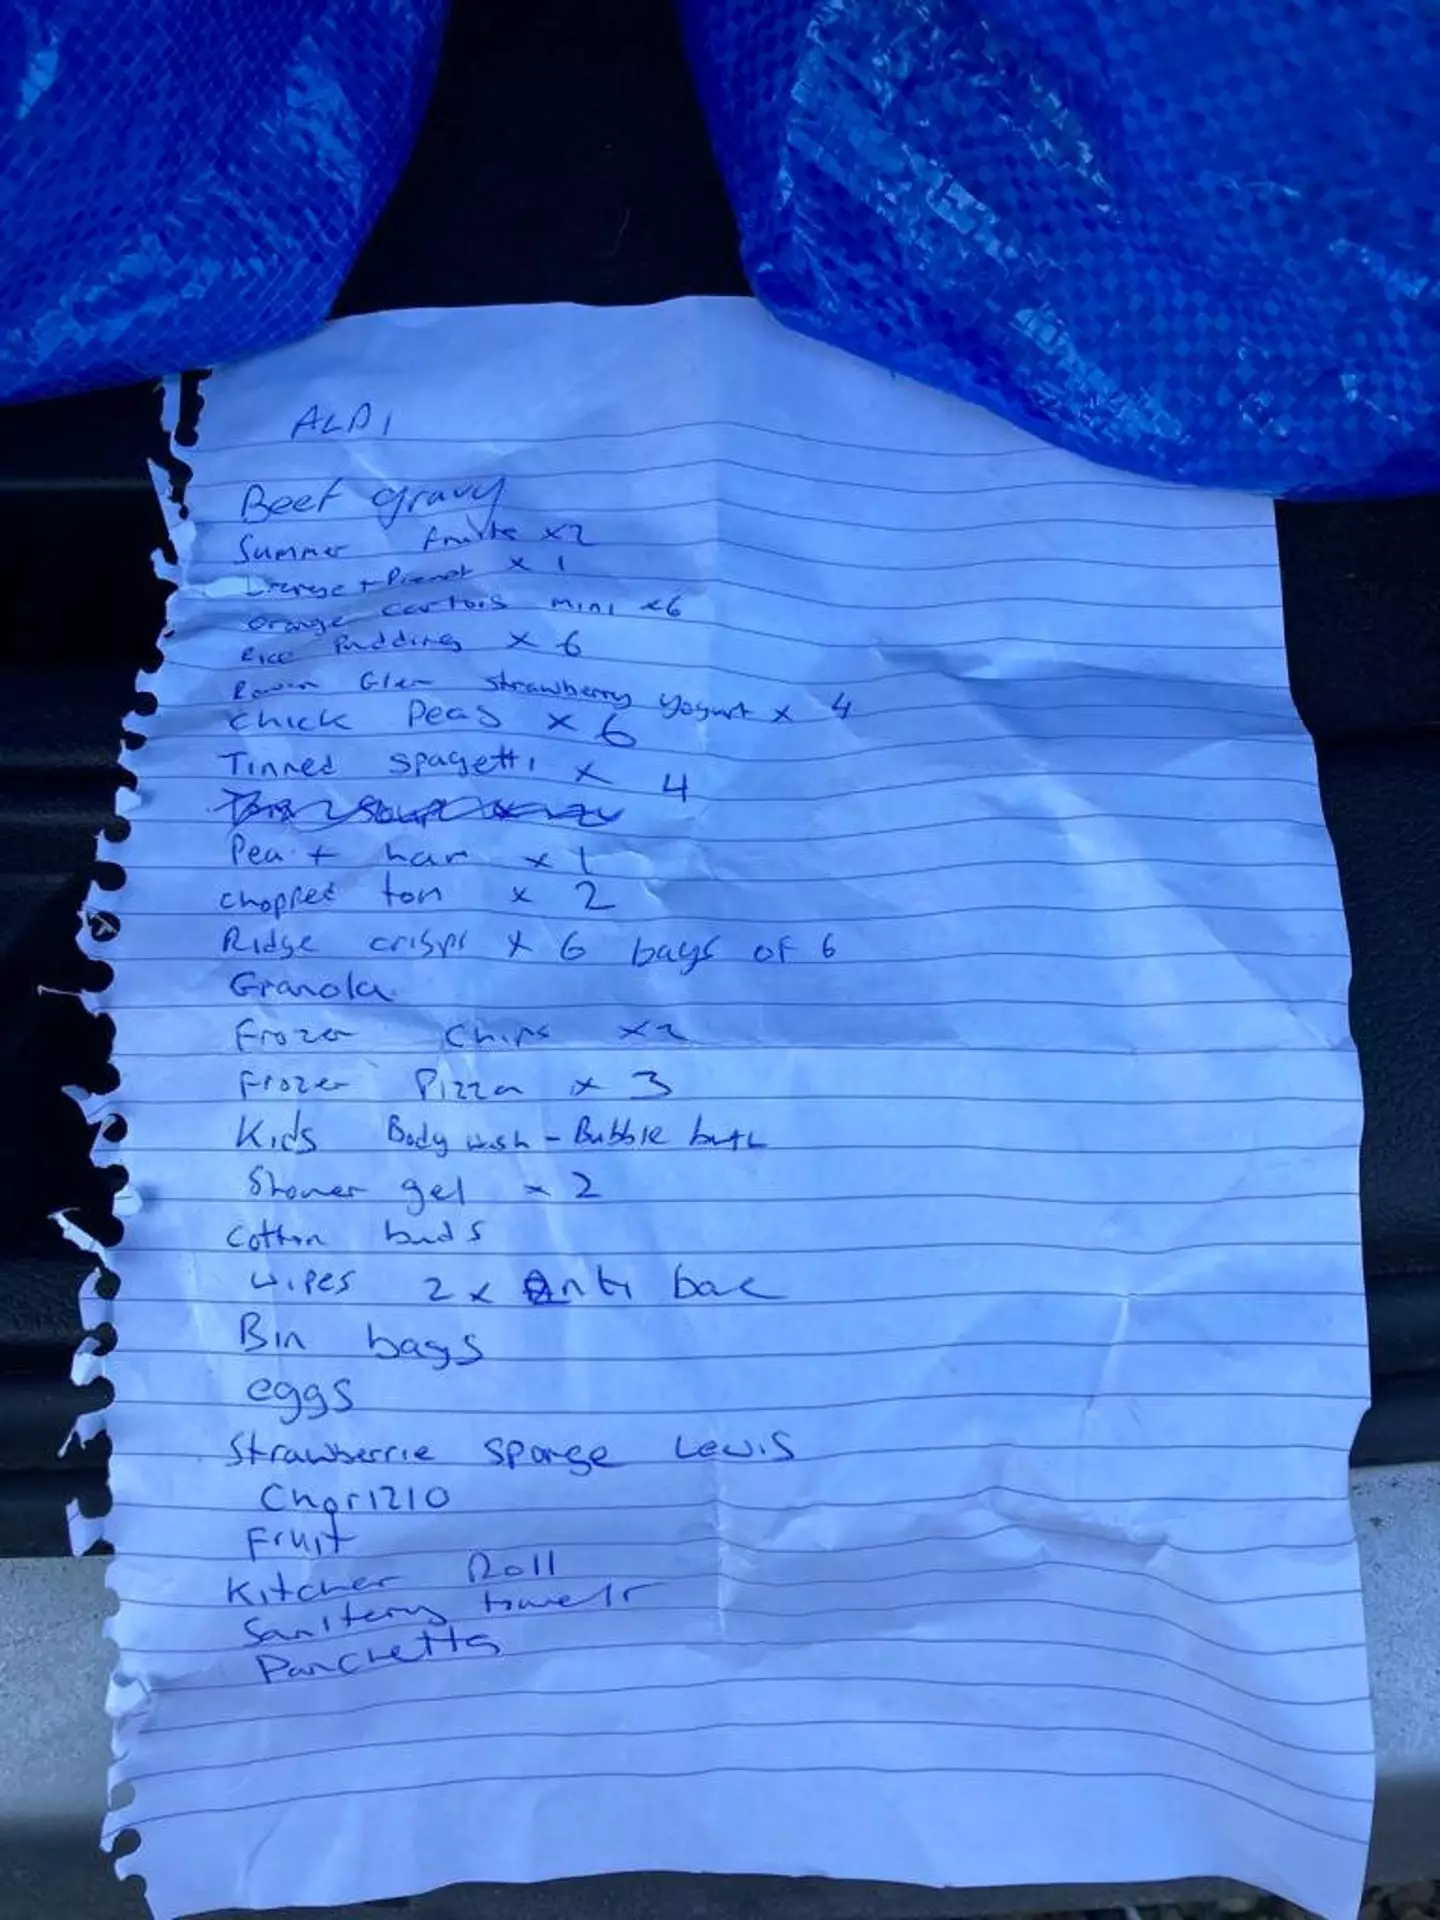 ALDI
Beef gravy
Summer fruits x2
+ x 1
Orange cartois mini x6
Rice Puddings x 6
Glen strawberry yogurt x 4
Chick Peas x 6
Tinned spagetti x 4
Pea + ham x 1
chopped tom x 2
Ridge crisps x 6 bags of 6
Granola
Frozen Chips x2
Frozen Pizza x 3
Kids Body wash - Bubble bath
Shower gel x 2
Cotton buds
Wipes 2 x Anti bac
Bin bags
eggs
Strawberrie sponge Lewis
Chorizio
Fruit
Kitchen Roll
Sanitery towels
Panchetta